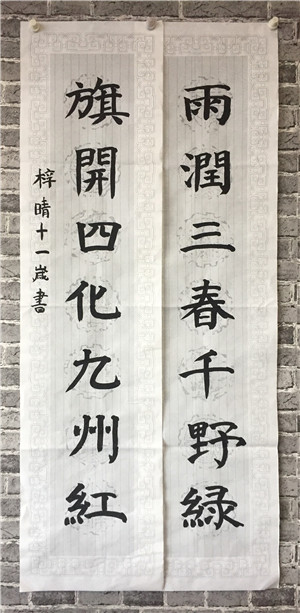 雨潤三春千野緑
旗開四化九州紅
梓晴十一歲書